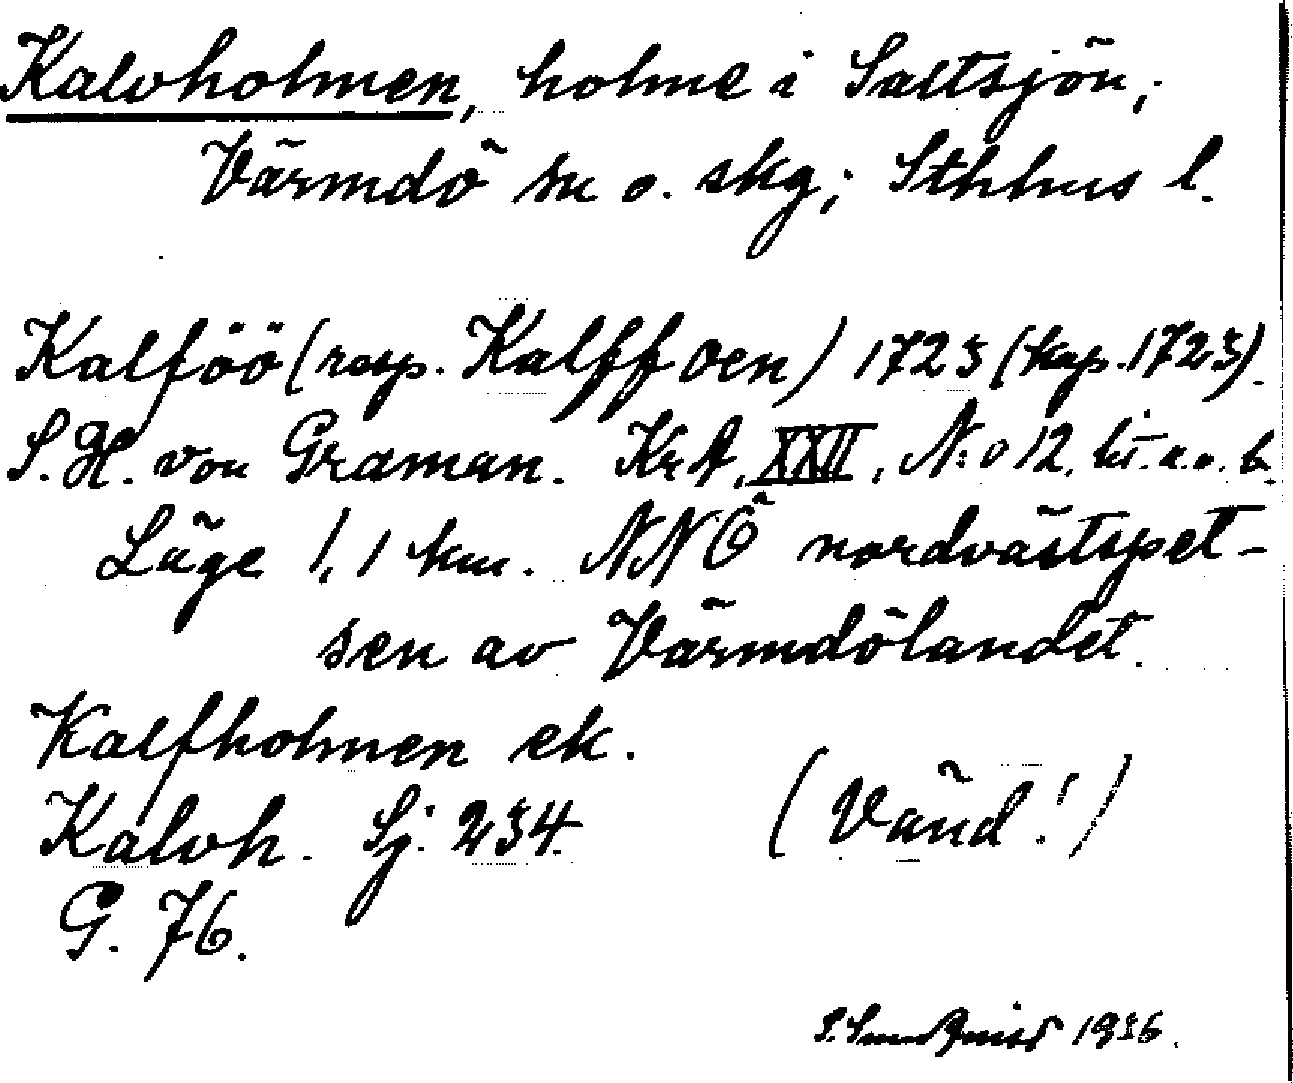 Kalvholmen, holme i Saltsjön,
Värmdö sn o. skg; Sthlms l.
Kalföö (resp. Kalffoen) 1723 (kop. 1723).
S. H. von Graman. KrA, XXII, N:o 12. lit. a. o. b.
Läge 1,1 km. NNÖ nordvästspet-
sen av Värmdölandet.
Kalfholmen ek.
Kalvh. Sj. 234.
(Vänd!)
G. 76.
1936.